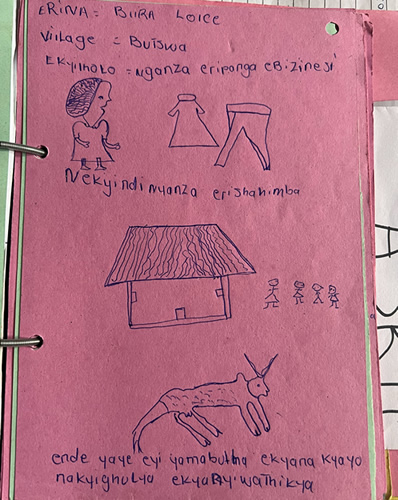 ERINA: BIIRA LOICE
Village = Butswa
EKyIHOLO = nganza eripanga EBIZINESI
NeKyindi nyanza erishahimba
ende yaye eyi yamabutha ekyana Kyayo
nakyighulya